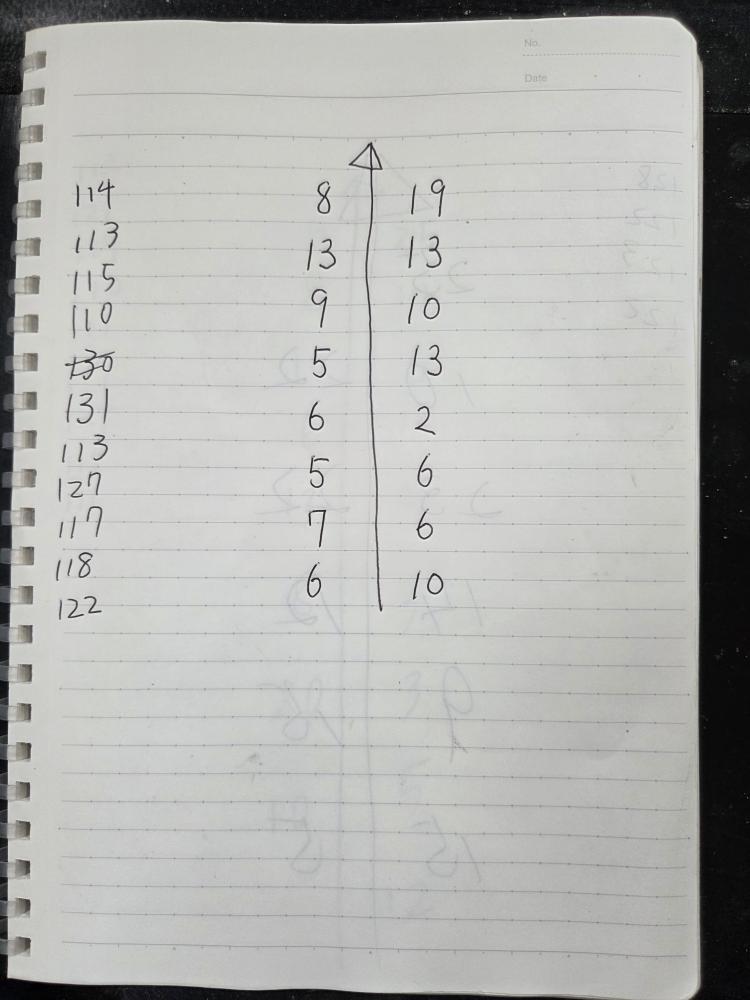 No.
Date
114
113
115
110
130
131
113
127
117
118
122
8 19
13 13
9 10
5 13
6 2
5 6
7 6
6 10